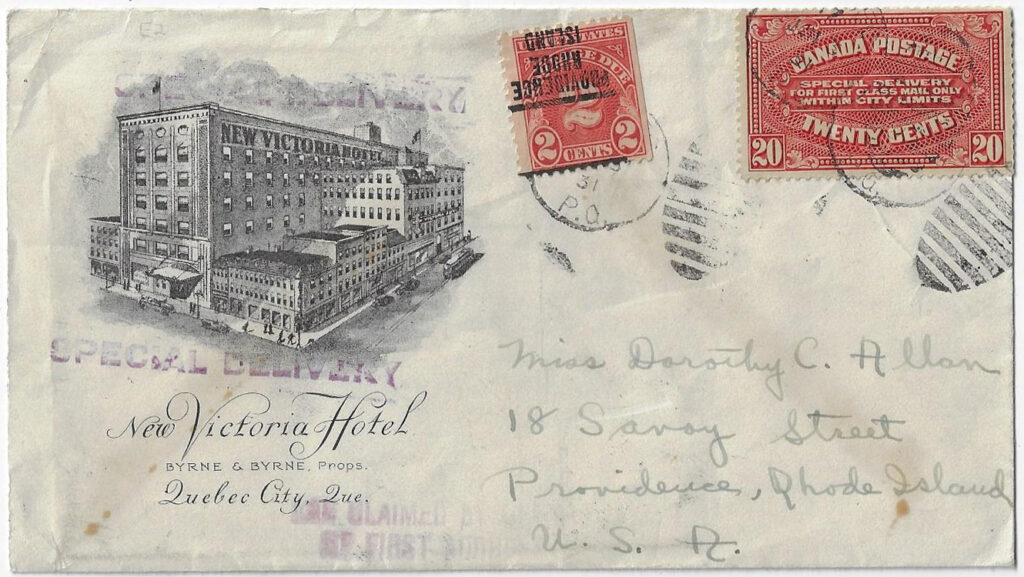 E2
SPECIAL DELIVERY
NEW VICTORIA HOTEL
SPECIAL DELIVERY
New Victoria Hotel
BYRNE & BYRNE, Props.
Quebec City, Que.
CLAIMED
FIRST
STATES
DUE
PROVIDENCE
RHODE
ISLAND
2 CENTS 2
31
P.Q.
CANADA POSTAGE
SPECIAL DELIVERY
FOR FIRST CLASS MAIL ONLY
WITHIN CITY LIMITS
TWENTY CENTS
20 20
Miss Dorothy C. Allan
18 Savoy Street
Providence, Rhode Island
U. S. A.